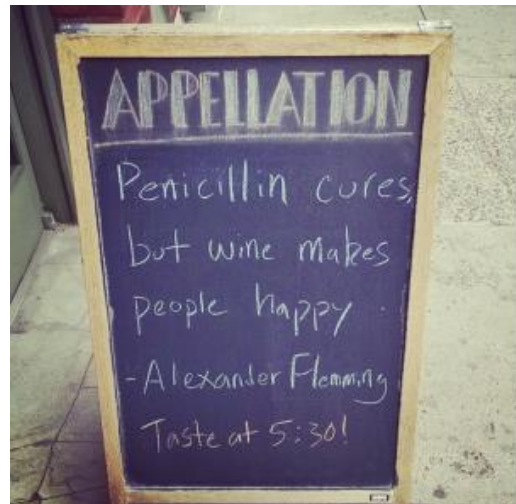 APPELLATION
Penicillin cures,
but wine makes
people happy.
-Alexander Flemming
Taste at 5:30!